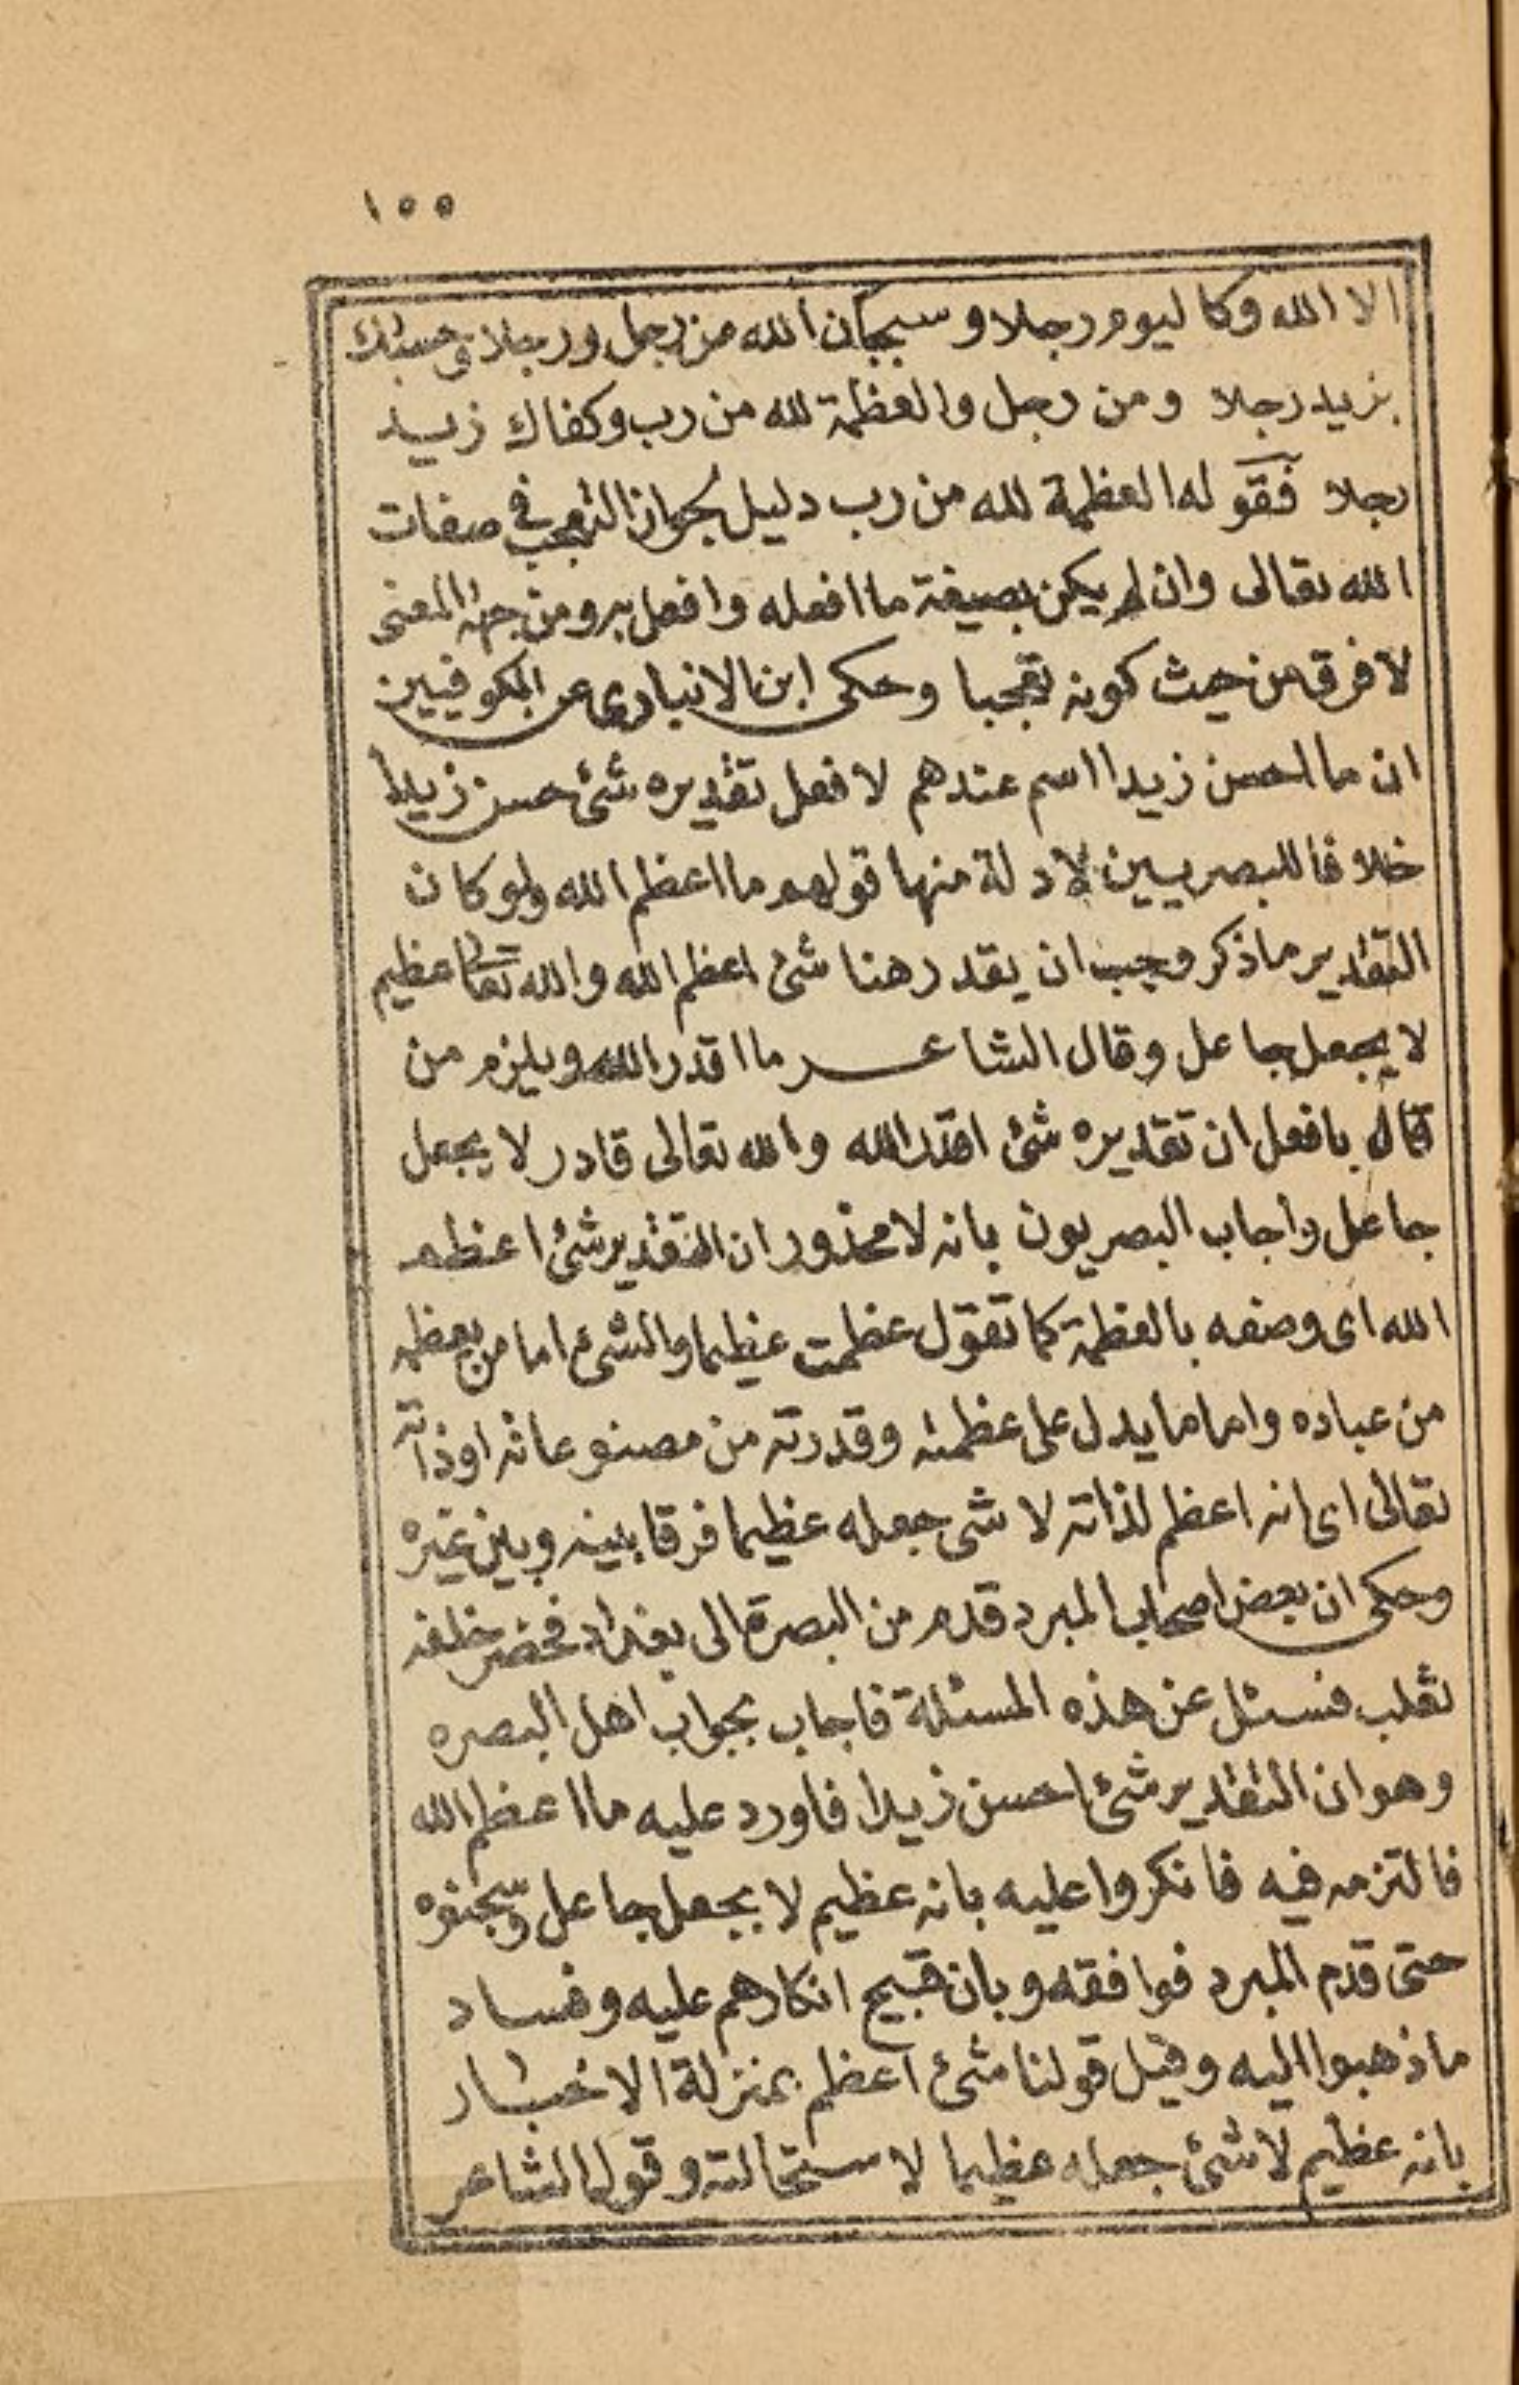 ١٥٥
الا الله وكاليوم رجلا وسبحان الله من رجل ورجلا وحسبك
بزيد رجلا ومن رجل والعظمة لله من رب وكفاك زيد
رجلا فقوله العظمة لله من رب دليل بجواز التعجب في صفات
الله تعالى وان لم يكن بصيغة ما افعله وافعل به ومن جهة المعنى
لا فرق من حيث كونه تعجبا وحكى ابن الانبارى عن الكوفيين
ان ما احسن زيدا اسم عندهم لا فعل تقديره شئ حسن زيدا
خلافا للبصريين لادلة منها قولهم ما اعظم الله ولو كان
التقدير ما ذكر وجب ان يقدر هنا شئ اعظم الله والله تعالى عظيم
لا بجعل جاعل وقال الشاعر ما اقدر الله ويلزم من
قال بافعل ان تقديره شئ اقدر الله والله تعالى قادر لا بجعل
جاعل واجاب البصريون بانه لا محذور ان التقدير شئ اعظم
الله اى وصفه بالعظمة كما تقول عظمت عظيما والشئ اما من يعظمه
من عباده واما ما يدل على عظمته وقدرته من مصنوعاته او ذاته
تعالى اى انه اعظم لذاته لا شئ جعله عظيما فرقا بينه وبين غيره
وحكى ان بعض اصحاب المبرد قدم من البصرة الى بغداد فحضر حلقة
ثعلب فسئل عن هذه المسئلة فاجاب بجواب اهل البصره
وهو ان التقدير شئ احسن زيدا فاورد عليه ما اعظم الله
فالتزمه فيه فانكروا عليه بانه عظيم لا بجعل جاعل
حتى قدم المبرد فوافقه وبان قبيح انكارهم عليه وفساد
ما ذهبوا اليه وقيل قولنا شئ اعظم بمنزلة الاخبار
بانه عظيم لا شئ جعله عظيما لاستحالته وقول الشاعر